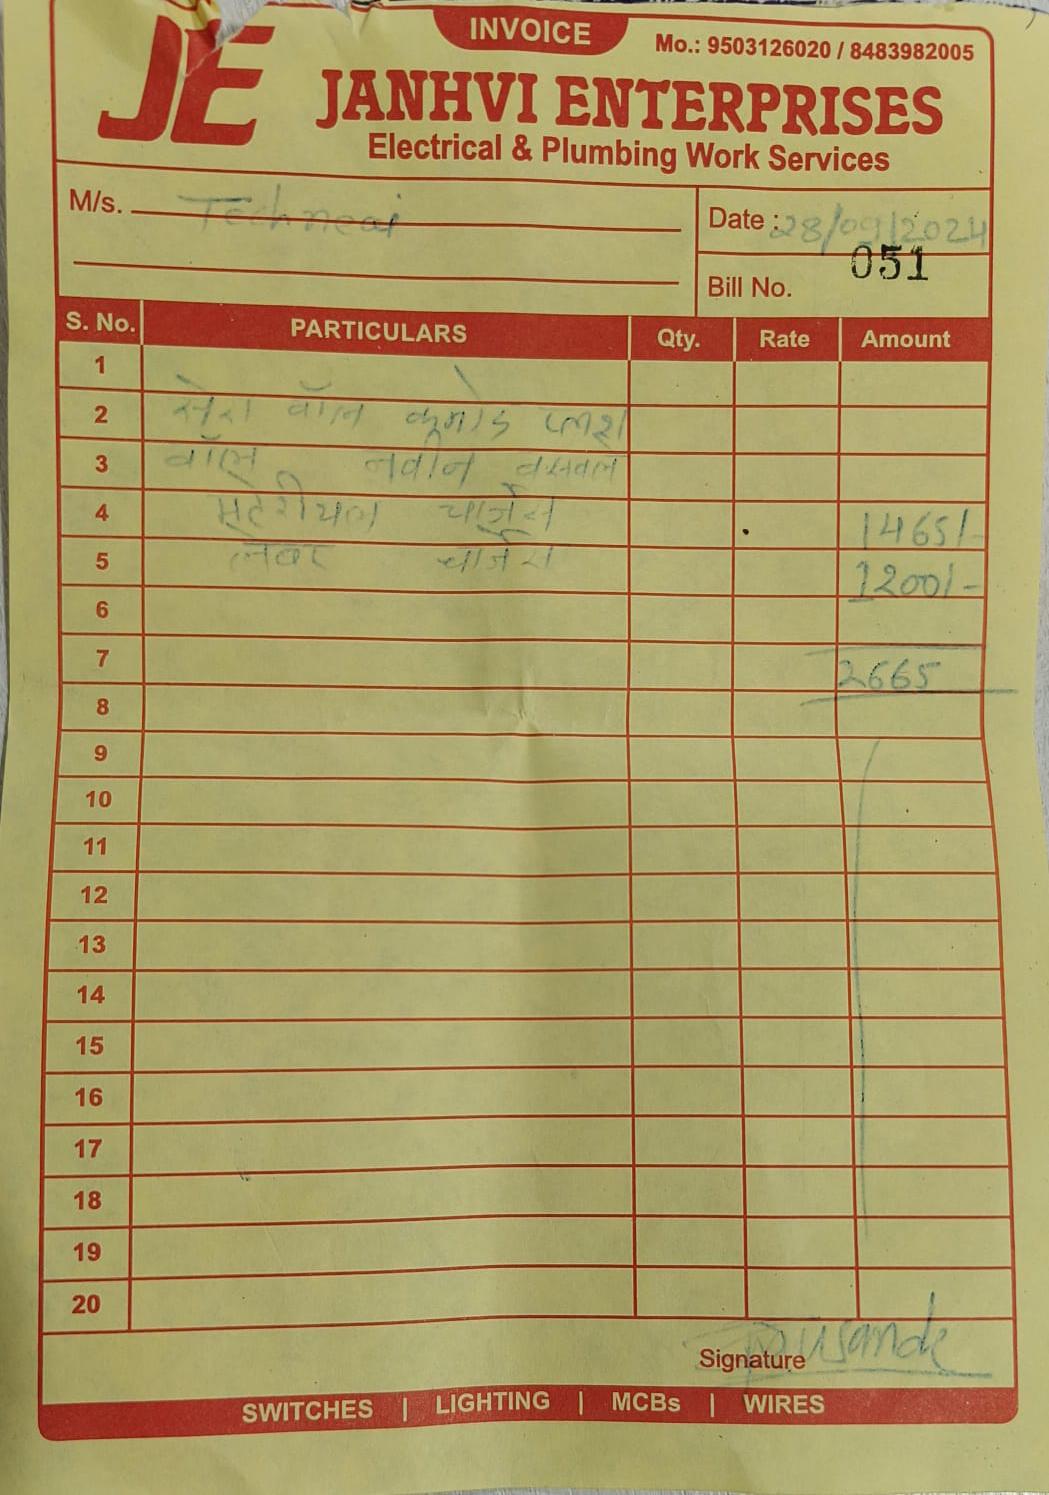 INVOICE
Mo.: 9503126020 / 8483982005
JE
JANHVI ENTERPRISES
Electrical & Plumbing Work Services
M/s. Techneai
Date : 28/09/2024
Bill No. 051
S. No. PARTICULARS Qty. Rate Amount
1
2 सेरा वॉल कमोड फ्लश
3 वॉल नवीन बसवले
4 मटेरीयल चार्जेस 1465/-
5 लेबर चार्जेस 1200/-
6
7 2665
8
9
10
11
12
13
14
15
16
17
18
19
20
Signature
SWITCHES | LIGHTING | MCBs | WIRES